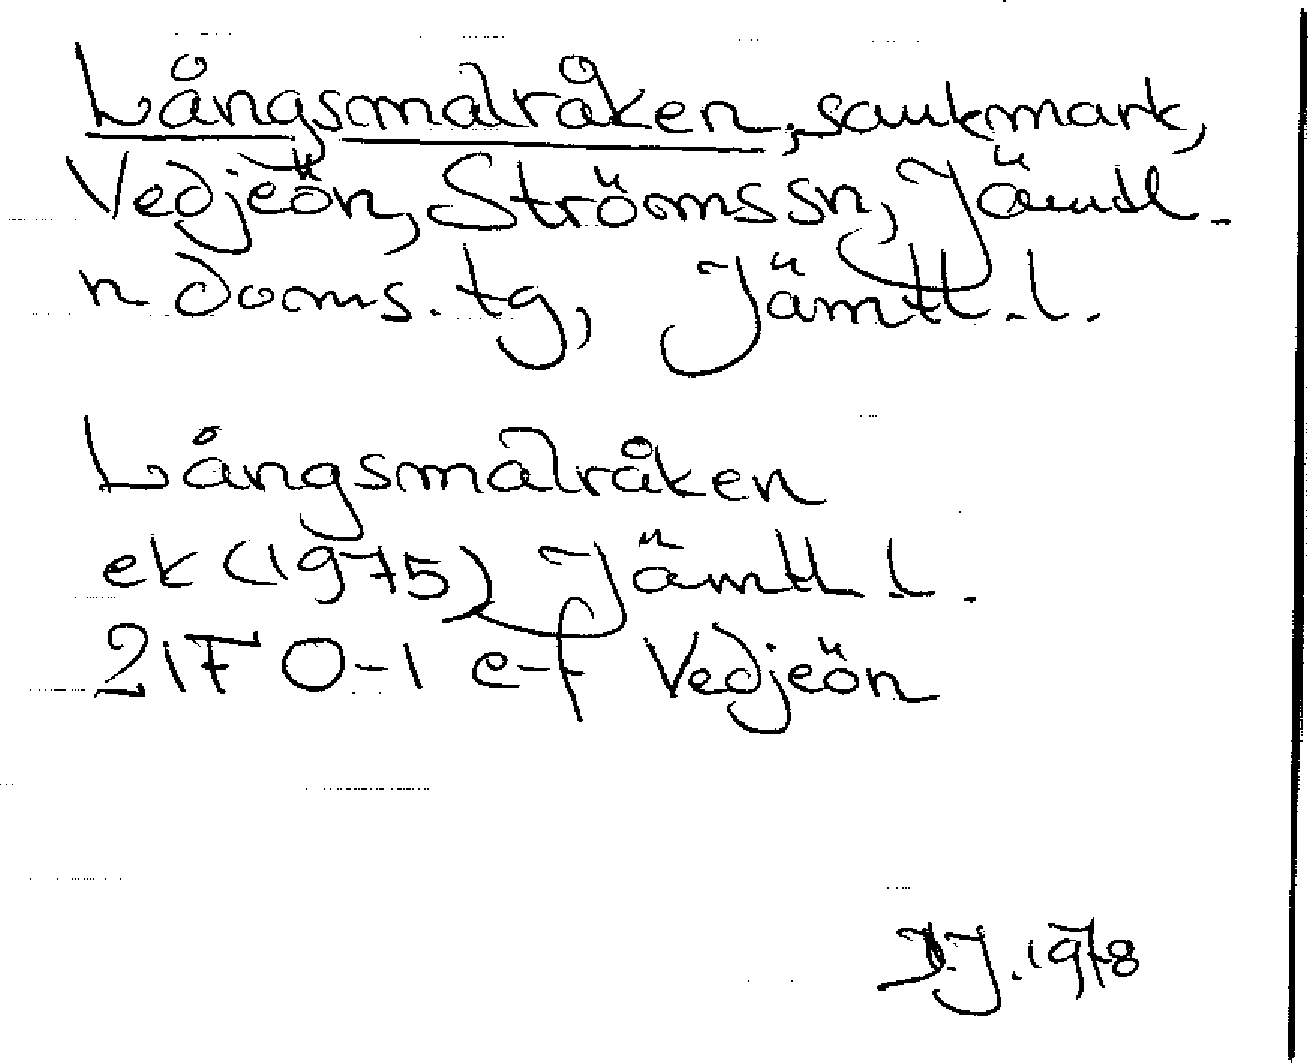 Långsmalråken, sankmark,
Vedjeön, Ströms sn, Jämtl.
n doms. tg, Jämtl. l.
Långsmalråken
ek (1975) Jämtl l.
21F 0-1 e-f Vedjeön
J.1978